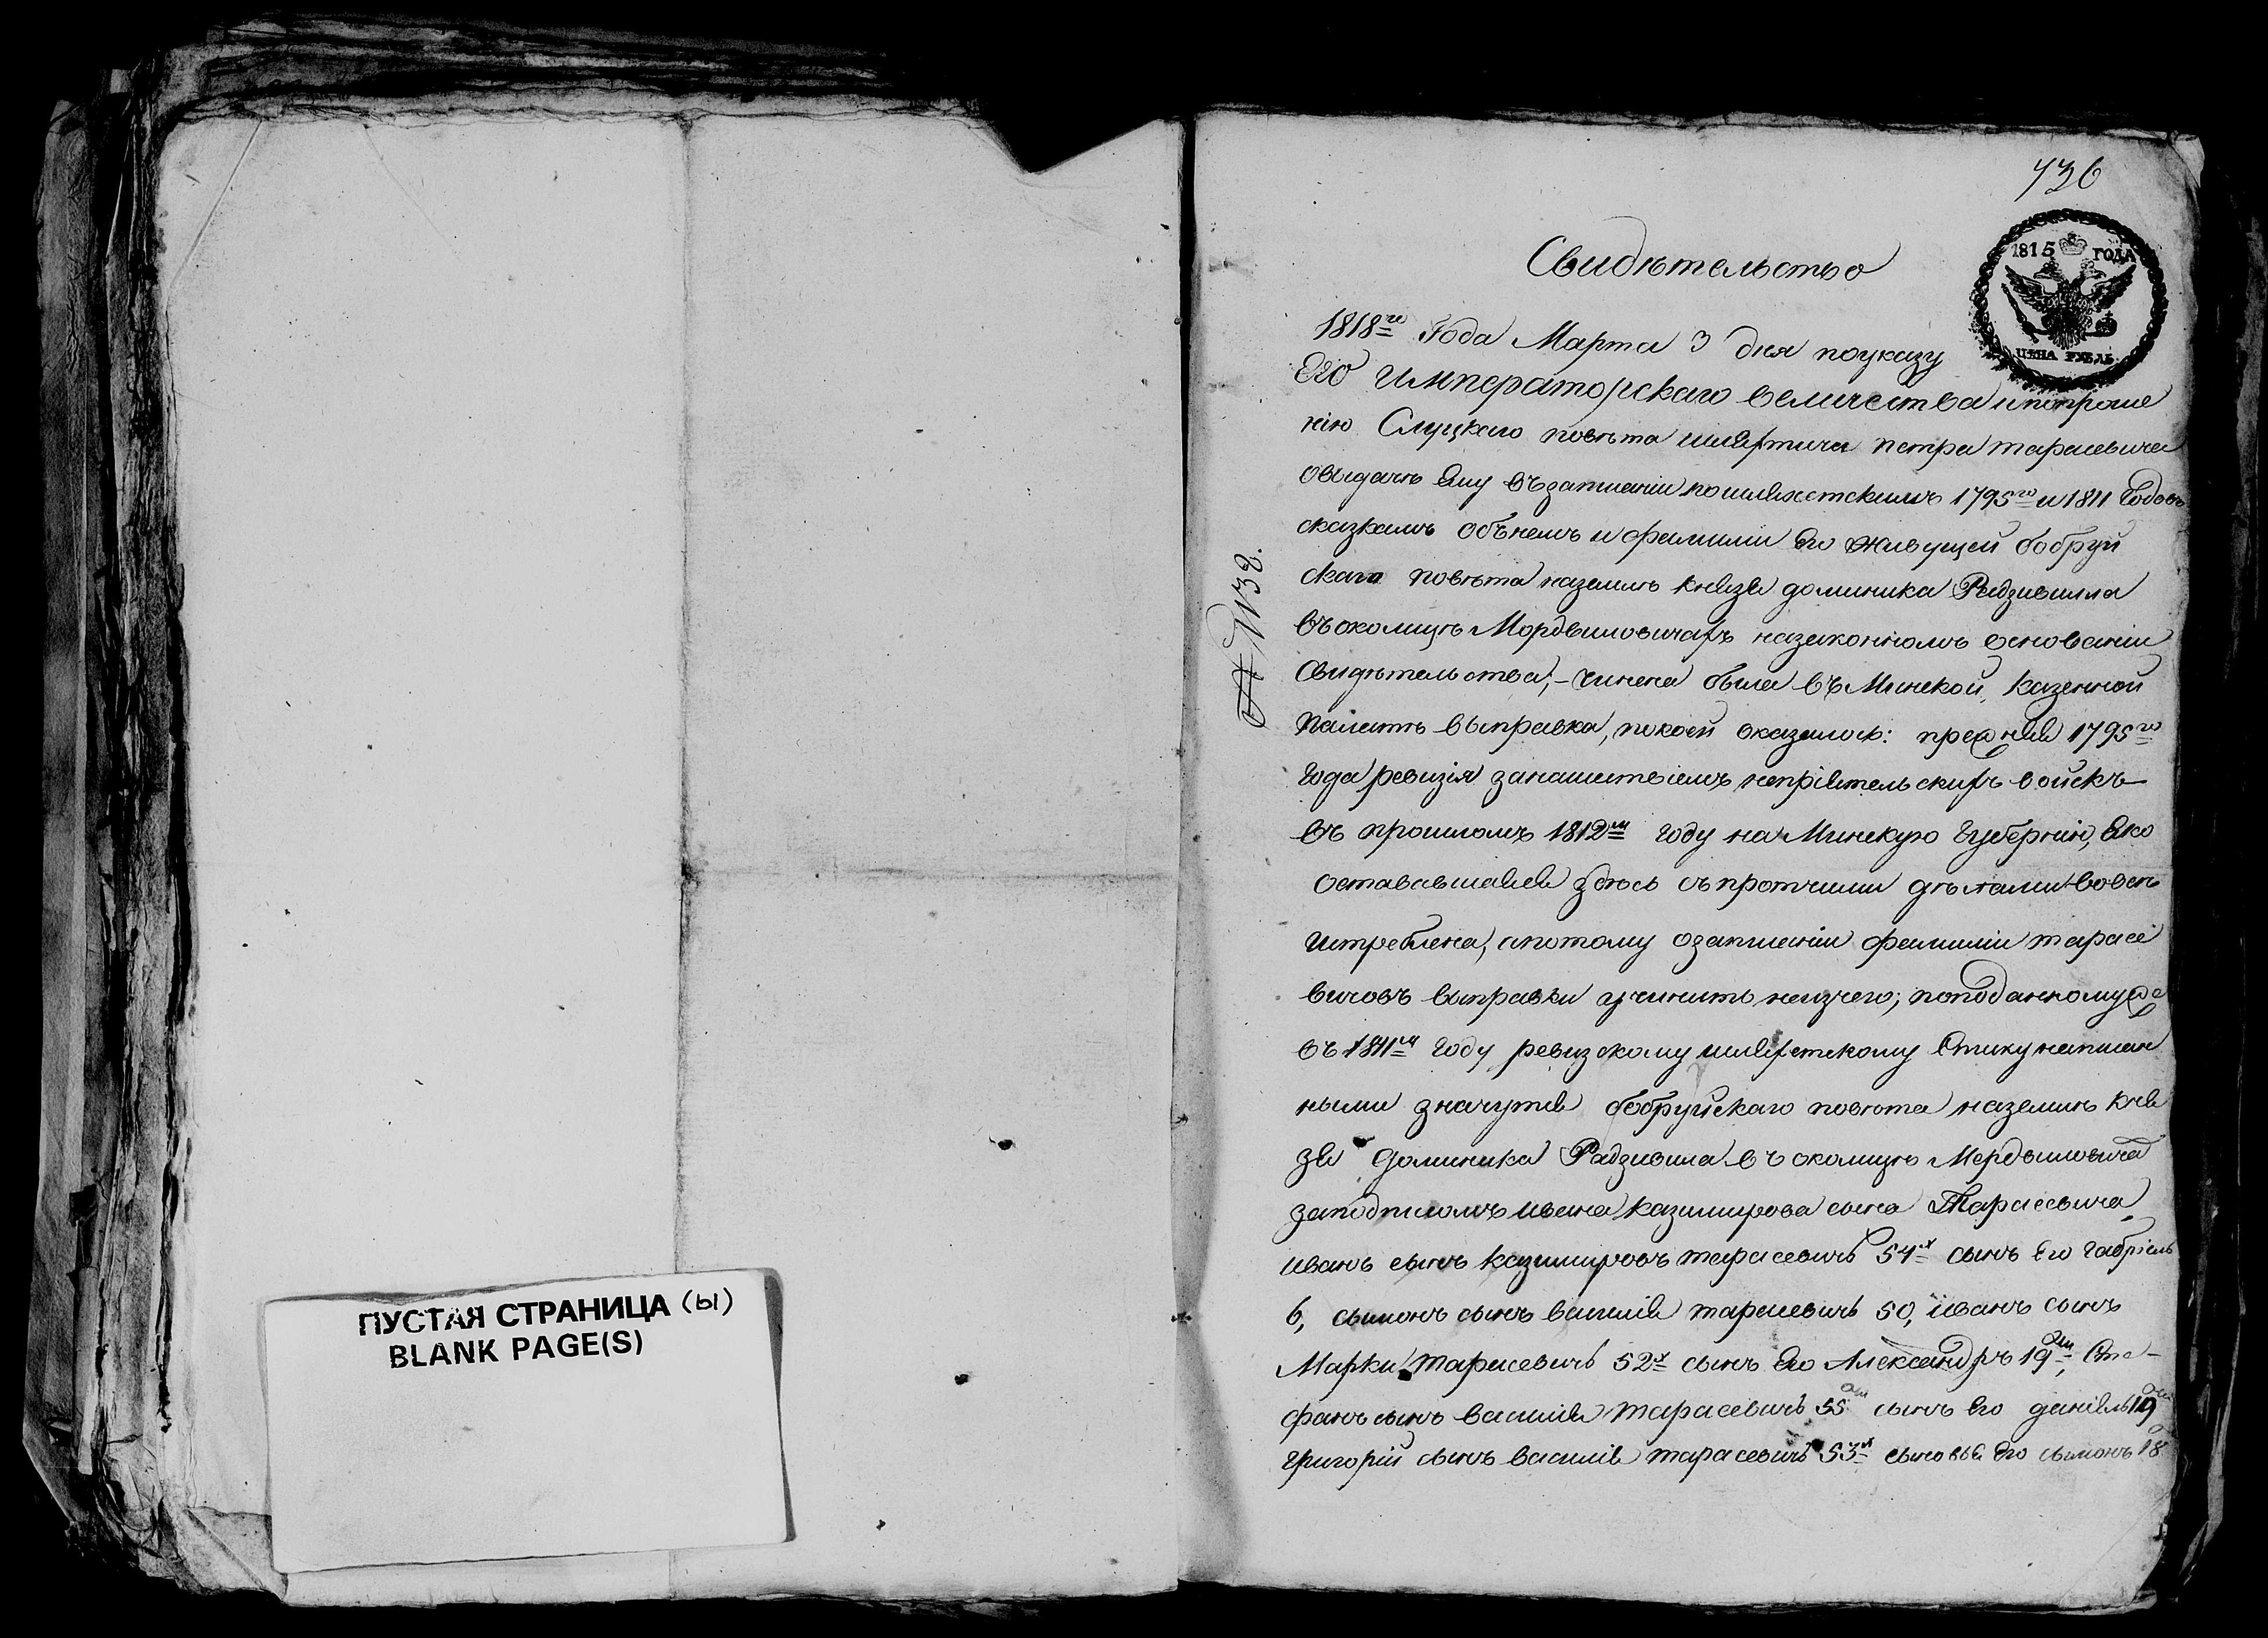 ПУСТАЯ СТРАНИЦА (ы)
BLANK PAGE(S)
736
1815 ГОДА
ЦЕНА РУБЛЬ
№ 1138.
Свидѣтельство
1818го Года Марта 3 дня поуказу
Его Императорскаго величества ипопроше
нію Слуцкаго повѣта шляхтича петра тарасевича
овыдачѣ Ему възаписаніи пошляхетскимъ 1795го и 1811 Годовъ
сказкамъ объ немъ и фамиліи Его живущей бобруй
скаго повѣта наземлѣ князя доминика Радзивилла
въоколицѣ Мордвиловичахъ назаконномъ основаніи
свидѣтельства; – чинена была въ Минской казенной
палатѣ выправка, покоей оказалось: прежняя 1795го
года ревизія занашествіемъ непріятельскихъ войскъ
въ прошломъ 1812м году на Минскую Губернію, яко
оставшаяся здѣсь съпротчими дѣлами вовсе
истреблена, апотому озаписаніи фамиліи тарасе
вичовъ выправки учинить неизчего; поподанному же
въ 1811м году ревизскому шляхетскому Списку написан
ными значутся бобруйскаго повѣта наземлѣ кня
зя доминика Радзивила въ околицѣ Мордвиловича
заподписомъ ивана казимирова сына Тарасевича
иванъ сынъ казимировъ тарасевичъ 54х сынъ Его габріель
6, сымонъ сынъ василія тарасевичъ 50, иванъ сынъ
Марки тарасевичъ 52х сынъ Его Александръ 19ти, Сте-
фанъ сынъ василія тарасевичъ 55ти сынъ Его даніель 19
григорій сынъ василія тарасевичъ 53х сыновья Его сымонъ 18